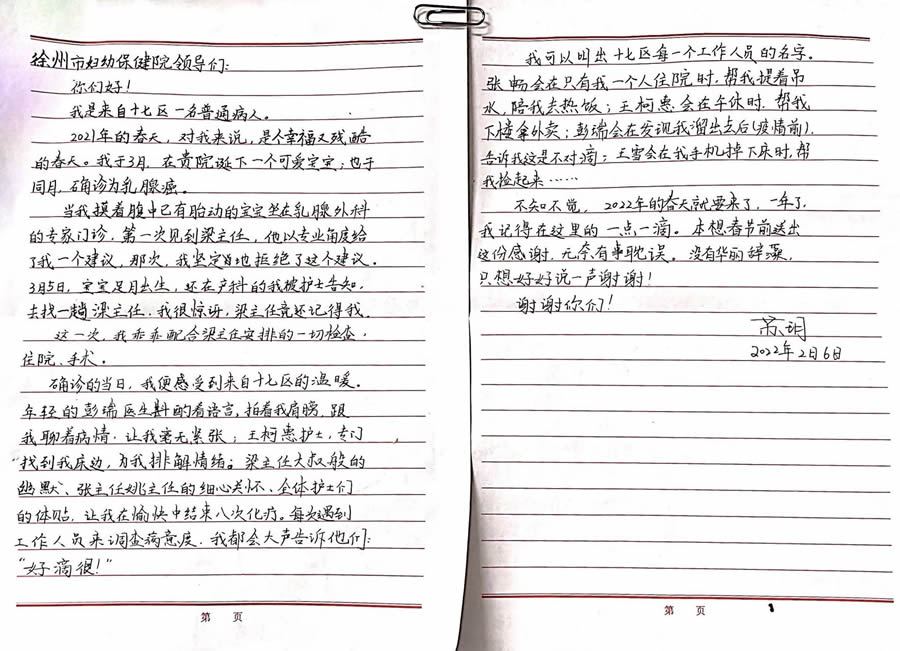 徐州市妇幼保健院领导们:
你们好!
我是来自十七区一名普通病人。
2021年的春天,对我来说,是个幸福又残酷
的春天。我于3月,在贵院诞下一个可爱宝宝;也于
同月,确诊为乳腺癌。
当我摸着腹中已有胎动的宝宝坐在乳腺外科
的专家门诊,第一次见到梁主任,他以专业角度给
了我一个建议,那次,我坚定地拒绝了这个建议。
3月5日,宝宝足月出生,还在产科的我被护士告知,
去找一趟梁主任,我很惊讶,梁主任竟还记得我。
这一次,我乖乖配合梁主任安排的一切检查,
住院、手术。
确诊的当日,我便感受到来自十七区的温暖。
年轻的彭瑞医生斟酌着语言,拍着我肩膀,跟
我聊着病情,让我毫无紧张;王柯惠护士,专门
找到我床边,为我排解情绪。梁主任大叔般的
幽默、张主任姚主任的细心关怀、全体护士们
的体贴,让我在愉快中结束八次化疗。每次遇到
工作人员来调查满意度,我都会大声告诉他们:
“好滴很!”
第 页
我可以叫出十七区每一个工作人员的名字。
张畅会在只有我一个人住院时,帮我提着吊
水,陪我去热饭;王柯惠会在午休时,帮我
下楼拿外卖;彭瑞会在发现我溜出去后(疫情前),
告诉我这是不对滴;王雪会在我手机掉下床时,帮
我捡起来……
不知不觉,2022年的春天就要来了,一年了,
我记得在这里的一点一滴。本想春节前送出
这份感谢,无奈有事耽误。没有华丽辞藻,
只想好好说一声谢谢!
谢谢你们!
2022年2月6日
第 页